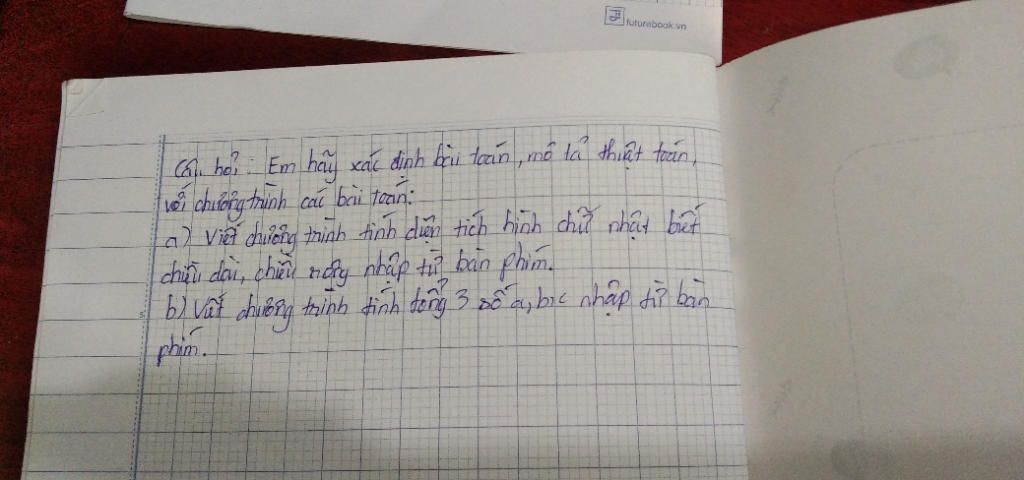 futurebook.vn
Câu hỏi: Em hãy xác định bài toán, mô tả thuật toán,
với chương trình các bài toán:
a) Viết chương trình tính diện tích hình chữ nhật biết
chiều dài, chiều rộng nhập từ bàn phím.
b) Viết chương trình tính tổng 3 số a, b, c nhập từ bàn
phím.